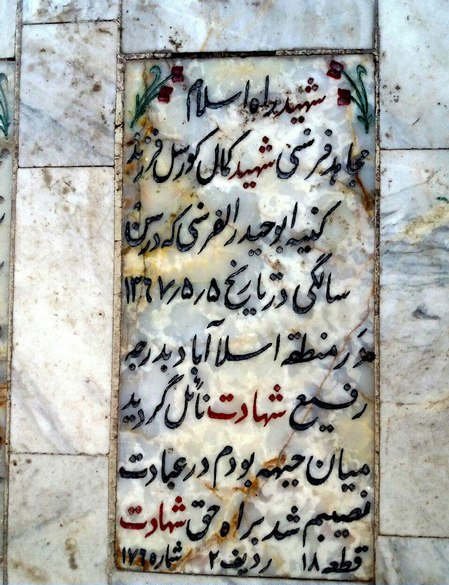 شهید براه اسلام
مجاهد فرنسی شهید کمال کورسل فرزند
کنیه ابوحیدر الفرنسی که در سن
سالگی در تاریخ ۱۳۶۷/۵/۵
در منطقه اسلام آباد بدرجه
رفیع شهادت نائل گردید
میان جبهه بودم در عبادت
نصیبم شد براه حق شهادت
قطعه ۱۸ ردیف ۲ شماره ۱۷۶